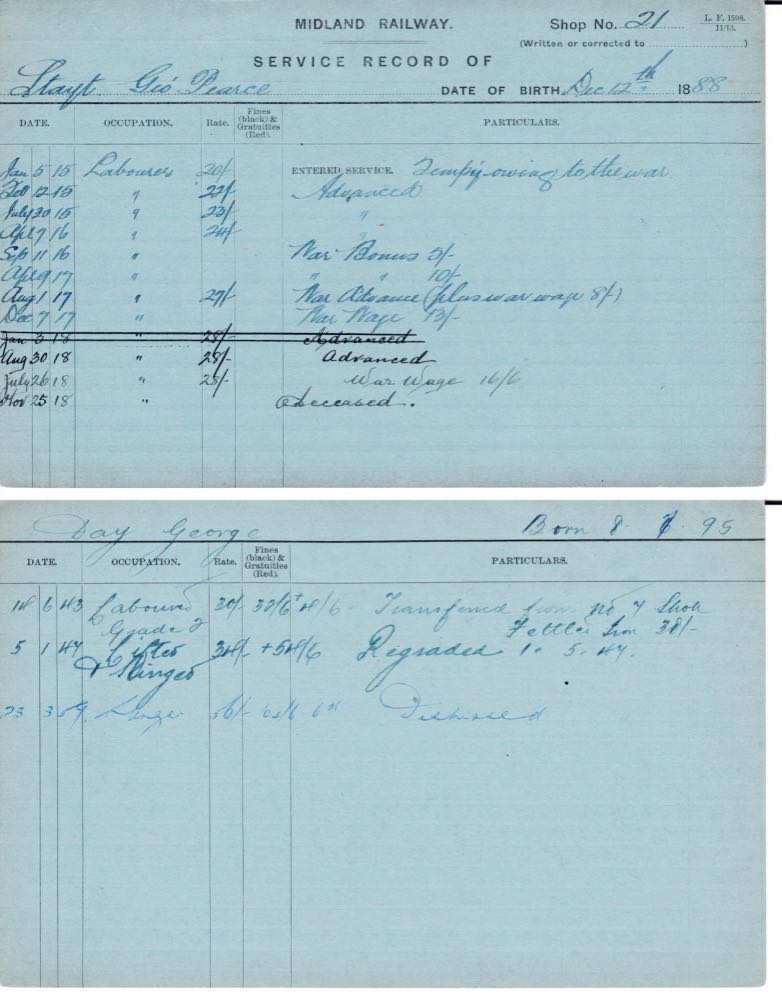 MIDLAND RAILWAY.
Shop No. 21
L. F. 1598.
11/13.
(Written or corrected to )
SERVICE RECORD OF
Stayt Geo Pearce
DATE OF BIRTH Dec 12th 1888
DATE. OCCUPATION. Rate. Fines (black) & Gratuities (Red). PARTICULARS.
Jan 5 15 Labourer 20/- ENTERED SERVICE. Temp'y owing to the war
Feb 12 15 " 22/- Advanced
July 30 15 " 23/- "
Apl 7 16 " 24/- "
Sep 11 16 " War Bonus 5/-
Apl 9 17 " " " 10/-
Aug 1 17 " 27/- War Advance (plus war wage 8/-)
Dec 7 17 " War Wage 13/-
Jan 3 18 " 28/- Advanced
Aug 30 18 " 28/- Advanced
July 26 18 " 28/- War Wage 16/6
Nov 25 18 " Deceased.
Day George Born 8. 95
DATE. OCCUPATION. Rate. Fines (black) & Gratuities (Red). PARTICULARS.
6 43 Labourer 30/- Transferred from No 4 Shop
Grade 2 Fettler Iron 38/-
5 1 47 Lifter Regraded 1. 5. 47.
& Slinger
23 3 59 56/-